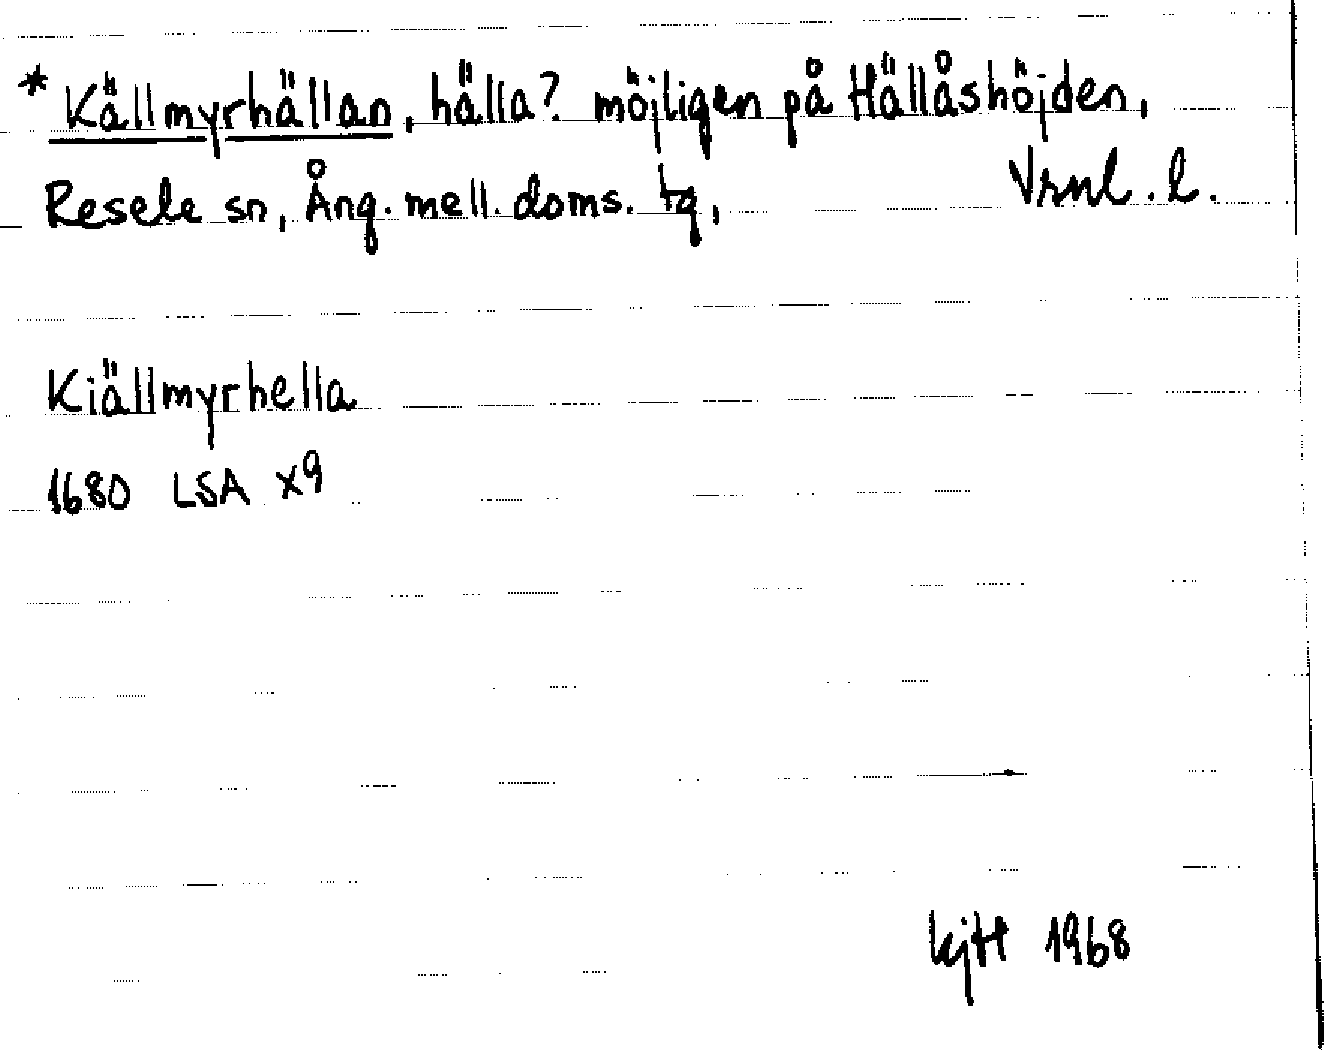 * Källmyrhällan, hälla? möjligen på Hällåshöjden,
Resele sn, Ång. mell. doms. tg, Vrnl. l.
Kiällmyrhella
1680 LSA X9
kjtt 1968